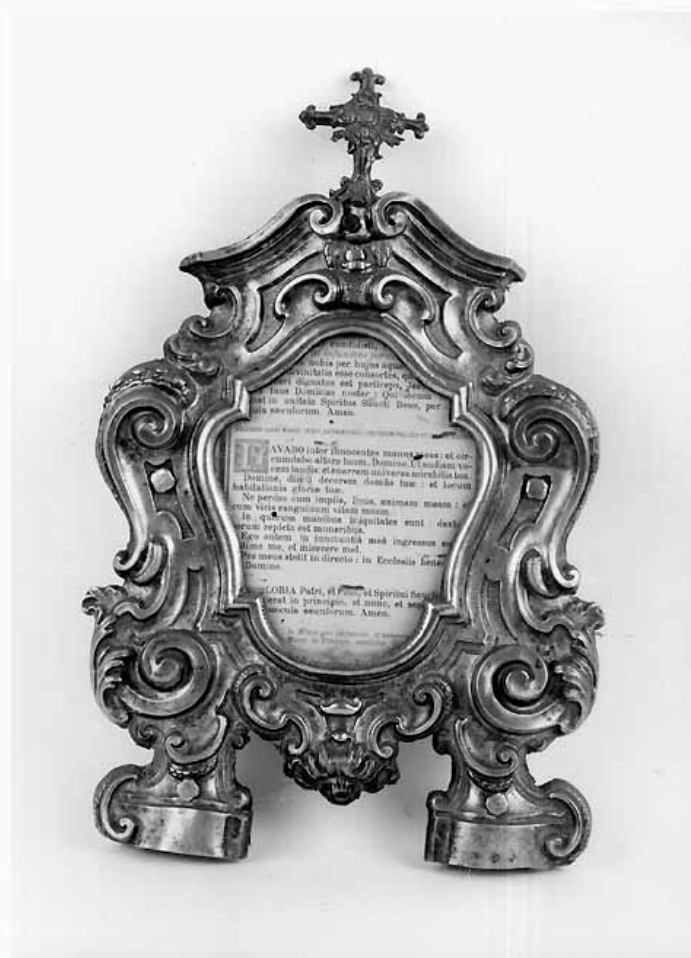 nobis per hujus aquæ
esse consortes,
dignatus est particeps,
tuus Dominus noster : Qui tecum
in unitate Spiritus Sancti Deus, per
sæculorum. Amen.
LAVABO inter innocentes manus meas : et cir-
cumdabo altare tuum, Domine. Ut audiam vo-
cem laudis: et enarrem universa mirabilia tua.
Domine, dilexi decorem domûs tuæ : et locum
habitationis gloriæ tuæ.
Ne perdas cum impiis, Deus, animam meam :
cum viris sanguinum vitam meam.
In quorum manibus iniquitates sunt :
repleta est muneribus.
Ego autem in innocentiâ meâ ingressus
me, et miserere meî.
Pes meus stetit in directo : in Ecclesiis
Domine.
GLORIA Patri, et Filio, et Spiritui
erat in principio, et nunc, et
sæcula sæculorum. Amen.